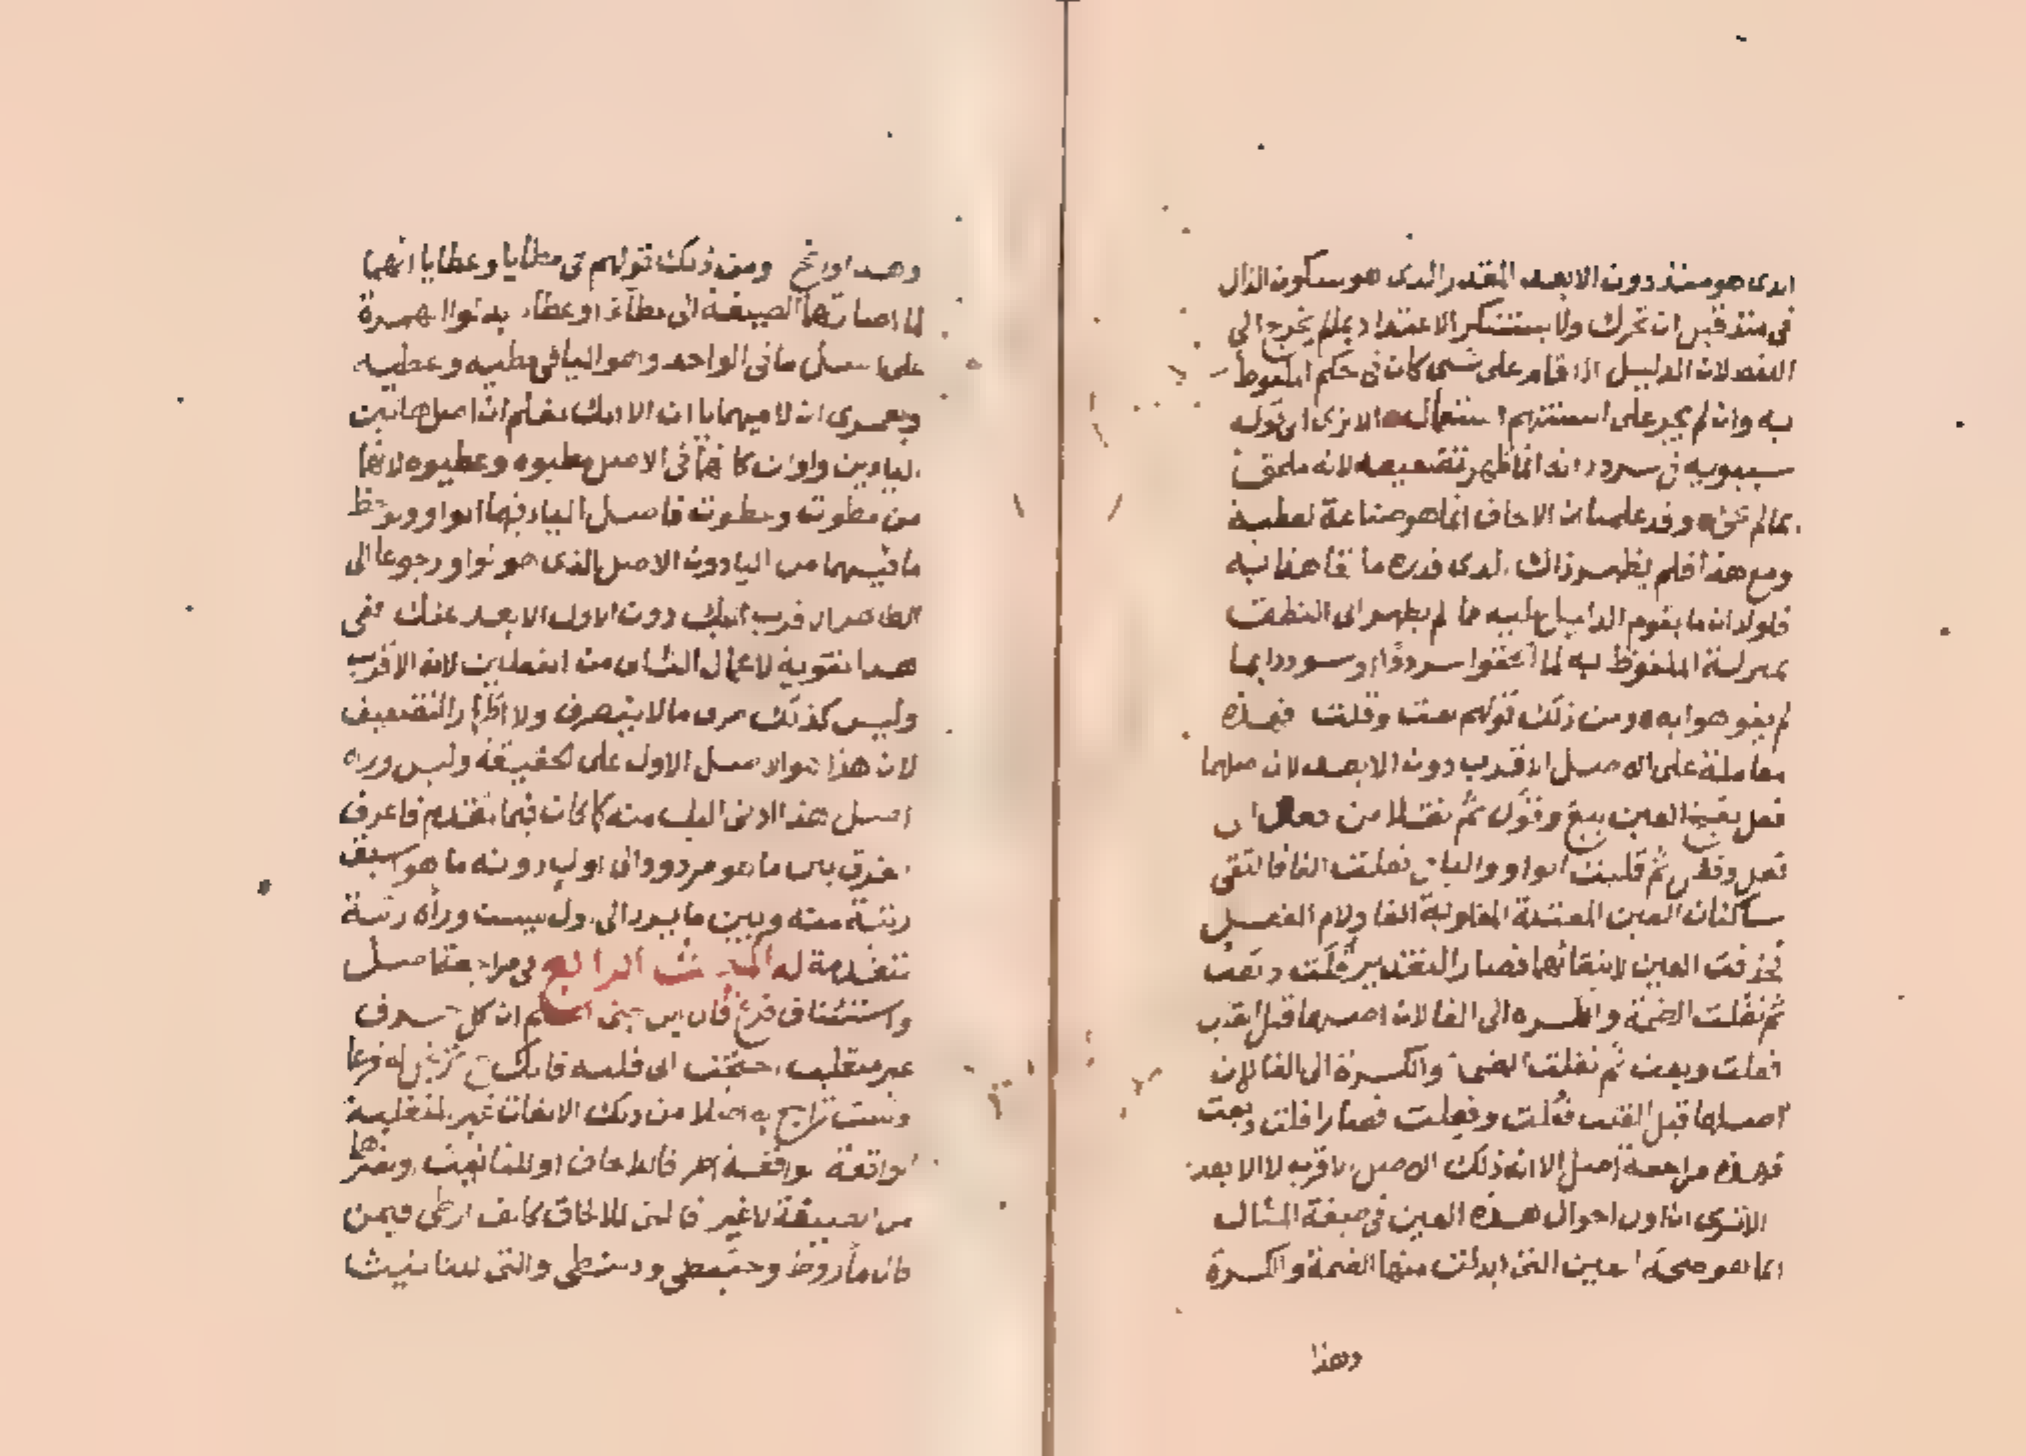 الذى هو منذ دون الابعد المقدر الذى هو سكون الذال
فى منذ قبل ان تحرك ولا يستنكر الاعتداد بما لم يخرج الى
اللفظ لان الدليل اذا قام على شى كان فى حكم الملفوظ
به وان لم يجر على السنتهم استعماله الا ترى الى قوله
سيبويه فى سردد انه انما ظهر تضعيفه لانه ملحق
بما لم يجئ وقد علمنا ان الالحاق انما هو صناعة لفظية
ومع هذا فلم يظهر ذاك الذى قدره ملحقا هذا به
فلولا ان ما يقوم الدليل عليه مما لم يظهر الى النطق
بمنزلة الملفوظ به لما الحقوا سرددا وسوددا بما
لم يفوهوا به ومن ذلك قولهم بعت وقلت فهذه
معاملة على الاصل الاقرب دون الابعد لان اصلهما
فعل بفتح العين بيع وقول ثم نقلا من فعل الى
فعل وفعل ثم قلبت الواو والياء فى فعلت الفا فالتقى
ساكنان العين المعتلة المقلوبة الفا ولام الفعل
فحذفت العين لالتقائهما فصار التقدير قلت وبعت
ثم نقلت الضمة والكسرة الى الفا لان اصلهما قبل القلب
فعلت وبعت ثم نقلت الضمة والكسرة الى الفا لان
اصلها قبل القلب فعلت وفعلت فصارا قلت وبعت
فهذه مراجعة اصل الا انه ذلك الاصل الاقرب لا الابعد
الا ترى ان اول احوال هذه العين فى صيغة المثال
انما هو صحة العين التى ابدلت منها الضمة والكسرة
وهذا
وهذا واضح ومن ذلك قولهم فى مطايا وعطايا انهما
لما اصارتها الصيغة الى مطاء وعطاء بدلوا الهمزة
على اصل ما فى الواحد وهو الياء فى مطية وعطية
ولعمرى ان لاميهما ياان الا انك تعلم ان اصل هاتين
الياءين واوان كانهما فى الاصل مطيوه وعطيوه لانهما
من مطوت وعطوت فاصل الياء فيهما الواو ولوحظ
ما فيهما من الياء دون الاصل الذى هو الواو رجوعا الى
الظاهر الاقرب اليك دون الاول الابعد عنك ففى
هذا تقوية لاعمال الثانى من الفعلين لانه الاقرب
وليس كذلك صرف ما لا ينصرف ولا اظهار التضعيف
لان هذا هو الاصل الاول على الحقيقة وليس وراه
اصل هذا ادنى اليك منه كما كان فيما تقدم فاعرف
الفرق بين ما هو مردود الى اول دونه ما هو اسبق
رتبة منه وبين ما يرد الى اول ليست وراه رتبة
متقدمة له المبحث الرابع فى مراجعة اصل
واستئناف فرع قال ابن جنى اعلم ان كل حرف
غير منقلب احتجت الى قلبه فانك ح ترتجل له فرعا
ولست تراجع به اصلا من ذلك الالفات غير المنقلبة
الواقعة اطرافا للالحاق او للتانيث او لغيرها
من الصيغة لا غير فالتى للالحاق كالف ارطى فيمن
قال ماروط وحبنطى ودلنظى والتى للتانيث